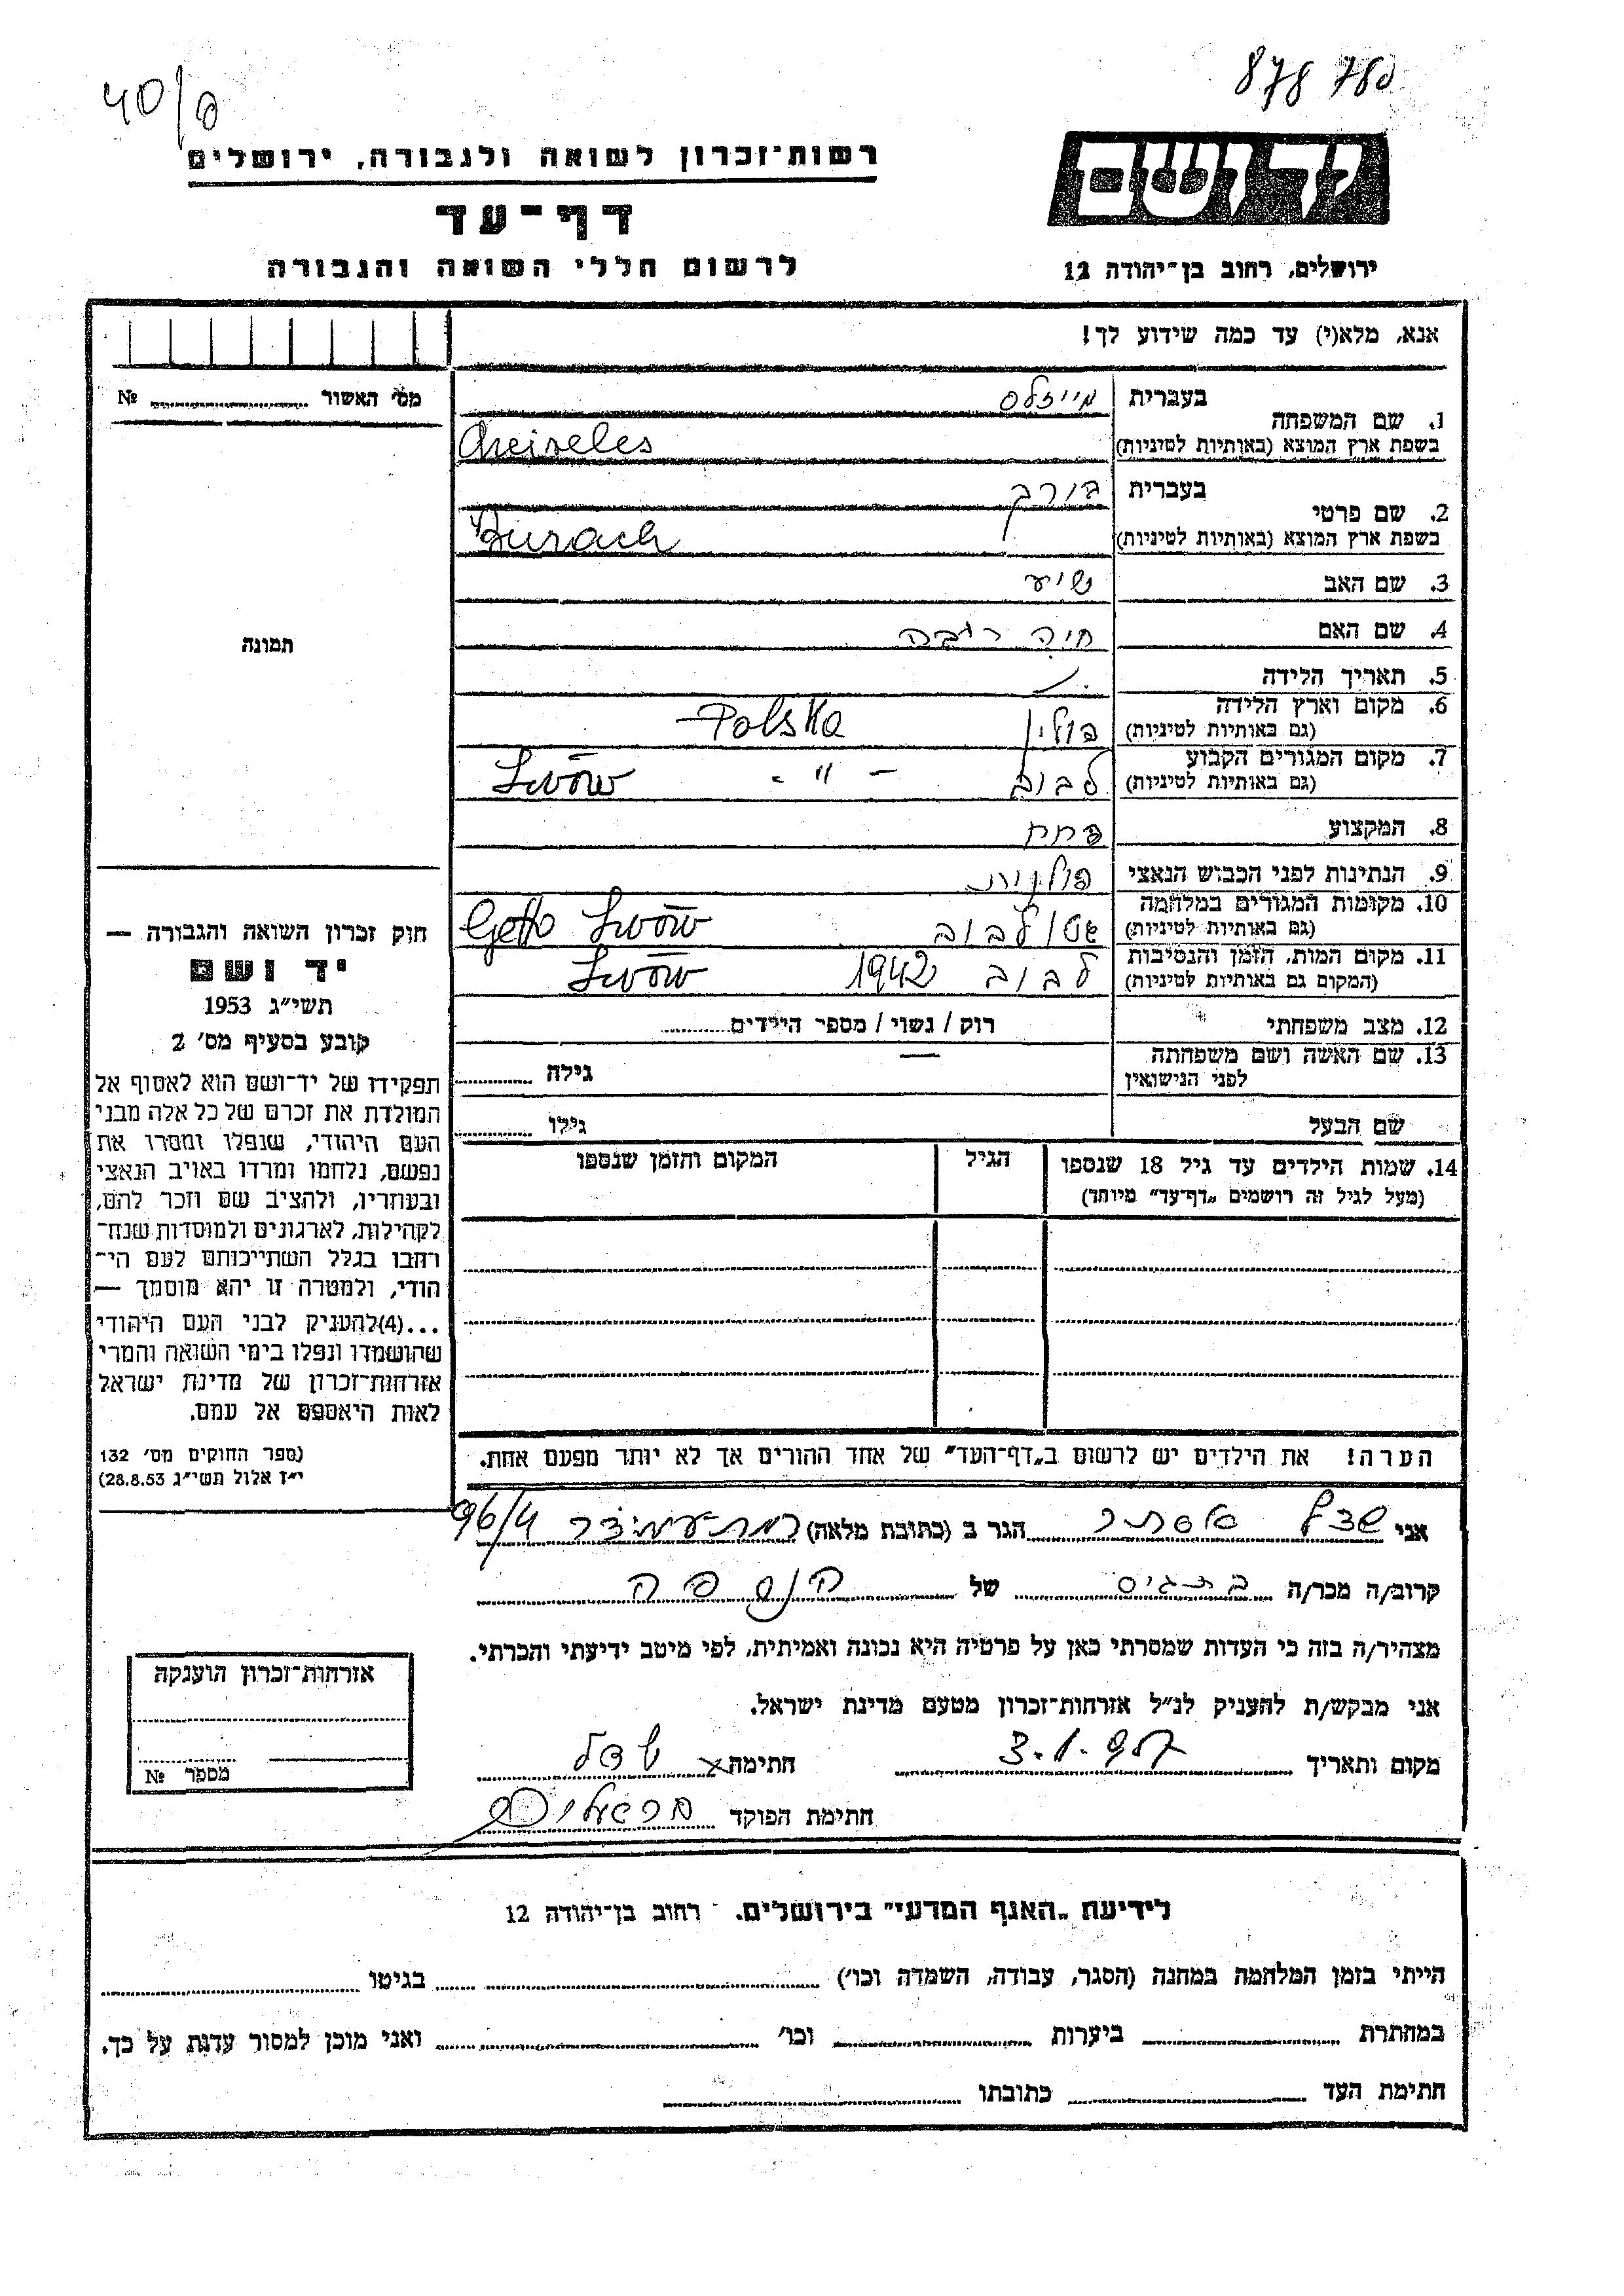 40/6
878 780
רשות־זכרון לשואה ולגבורה, ירושלים
יד ושם
דף־עד
לרשום חללי השואה והגבורה
ירושלים, רחוב בן־יהודה 12
אנא, מלא(י) עד כמה שידוע לך!
מס׳ האשור № 
1. שם המשפחה בעברית מייזלס
בשפת ארץ המוצא (באותיות לטיניות) Meiseles
2. שם פרטי בעברית בורך
בשפת ארץ המוצא (באותיות לטיניות) Burach
3. שם האב שיע
4. שם האם חיה
תמונה
5. תאריך הלידה
6. מקום וארץ הלידה (גם באותיות לטיניות) פולין Polska
7. מקום המגורים הקבוע (גם באותיות לטיניות) לבוב - " - Lwów
8. המקצוע
9. הנתינות לפני הכבוש הנאצי פולנית
10. מקומות המגורים במלחמה (גם באותיות לטיניות) גטו לבוב Getto Lwów
11. מקום המות, הזמן והנסיבות (המקום גם באותיות לטיניות) לבוב 1942 Lwów
12. מצב משפחתי רוק / נשוי / מספר הילדים
13. שם האשה ושם משפחתה לפני הנישואין גילה
שם הבעל גילו
14. שמות הילדים עד גיל 18 שנספו הגיל המקום והזמן שנספו
(מעל לגיל זה רושמים „דף־עד״ מיוחד)
חוק זכרון השואה והגבורה —
יד ושם
תשי״ג 1953
קובע בסעיף מס׳ 2
תפקידו של יד־ושם הוא לאסוף אל
המולדת את זכרם של כל אלה מבני
העם היהודי, שנפלו ומסרו את
נפשם, נלחמו ומרדו באויב הנאצי
ובעוזריו, ולהציב שם וזכר להם,
לקהילות, לארגונים ולמוסדות שנח־
רחבו בגלל השתייכותם לעם הי־
הודי, ולמטרה זו יהא מוסמך —
...(4)להעניק לבני העם היהודי
שהושמדו ונפלו בימי השואה והמרי
אזרחות־זכרון של מדינת ישראל
לאות היאספם אל עמם.
(ספר החוקים מס׳ 132
י״ז אלול תשי״ג 28.8.53)
הערה! את הילדים יש לרשום ב„דף־העד״ של אחד ההורים אך לא יותר מפעם אחת.
אני אסתר הגר ב (כתובת מלאה) רמת עמידר 96/4
קרוב/ה מכר/ה בת גיס של הנספה
מצהיר/ה בזה כי העדות שמסרתי כאן על פרטיה היא נכונה ואמיתית, לפי מיטב ידיעתי והכרתי.
אני מבקש/ת להעניק לנ״ל אזרחות־זכרון מטעם מדינת ישראל.
מקום ותאריך 3.1.957 חתימה
חתימת הפוקד
אזרחות־זכרון הוענקה
מספר №
לידיעת „האגף המדעי״ בירושלים. רחוב בן־יהודה 12
הייתי בזמן המלחמה במחנה (הסגר, עבודה, השמדה וכו׳) בגיטו
במחתרת ביערות וכו׳ ואני מוכן למסור עדות על כך.
חתימת העד כתובתו